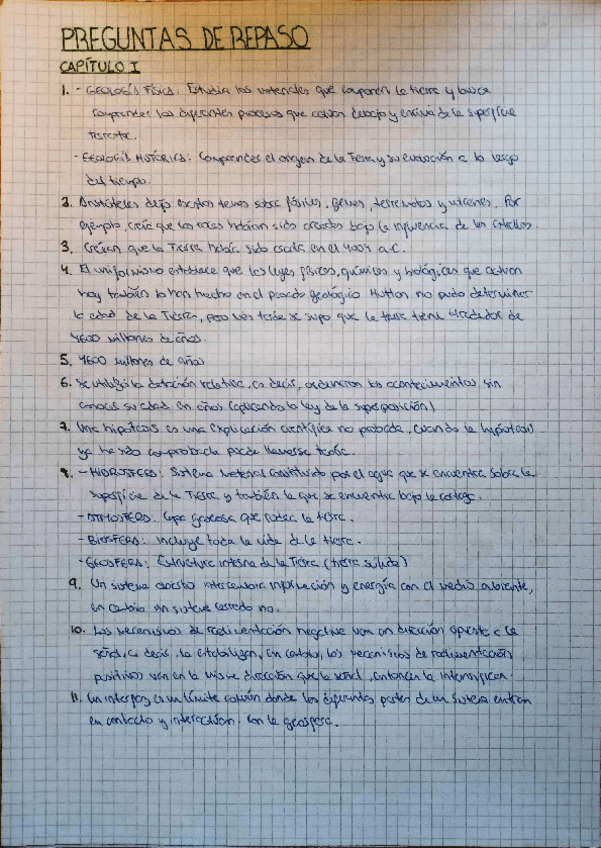 PREGUNTAS DE REPASO
CAPÍTULO I
1. - GEOLOGÍA FÍSICA: Estudia los materiales que componen la tierra y busca
comprender los diferentes procesos que actúan debajo y encima de la superficie
terrestre.
- GEOLOGÍA HISTÓRICA: Comprender el origen de la Tierra y su evolución a lo largo
del tiempo.
2. Aristóteles dejó escritos temas sobre fósiles, gemas, terremotos y volcanes. Por
ejemplo, creía que las rocas habían sido creadas bajo la influencia de las estrellas.
3. Creían que la Tierra había sido creada en el 4004 a.C.
4. El uniformismo establece que las leyes físicas, químicas y biológicas que actúan
hoy también lo han hecho en el pasado geológico. Hutton no pudo determinar
la edad de la Tierra, pero más tarde se supo que la tierra tiene alrededor de
4600 millones de años.
5. 4600 millones de años
6. Se utilizó la datación relativa, es decir, ordenaron los acontecimientos sin
conocer su edad en años (aplicando la ley de la superposición)
7. Una hipótesis es una explicación científica no probada, cuando la hipótesis
ya ha sido comprobada puede llamarse teoría.
8. - HIDROSFERA: Sistema material constituido por el agua que se encuentra sobre la
superficie de la Tierra, y también la que se encuentra bajo la corteza.
- ATMOSFERA: Capa gaseosa que rodea la tierra.
- BIOSFERA: incluye toda la vida de la tierra.
- GEOSFERA: Estructura interna de la Tierra (tierra sólida)
9. Un sistema abierto intercambia información y energía con el medio ambiente,
en cambio un sistema cerrado no.
10. Los mecanismos de realimentación negativa van en dirección opuesta a la
señal, es decir, la estabilizan, en cambio, los mecanismos de realimentación
positivos van en la misma dirección que la señal, entonces la intensifican.
11. Un interfaz es un límite común donde las diferentes partes de un sistema entran
en contacto y interactúan. Con la geosfera.